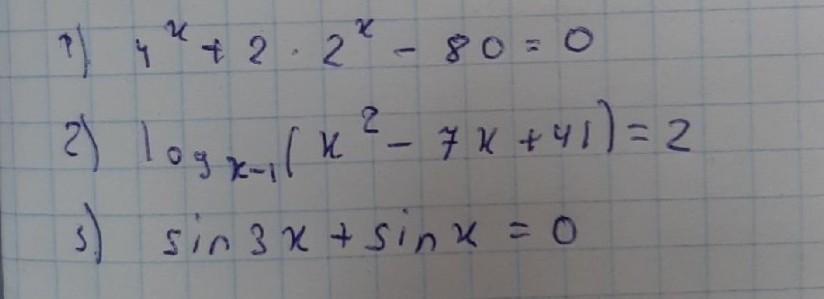 1) 4^x + 2 · 2^x - 80 = 0
2) log_{x-1}(x^2 - 7x + 41) = 2
3) sin3x + sinx = 0